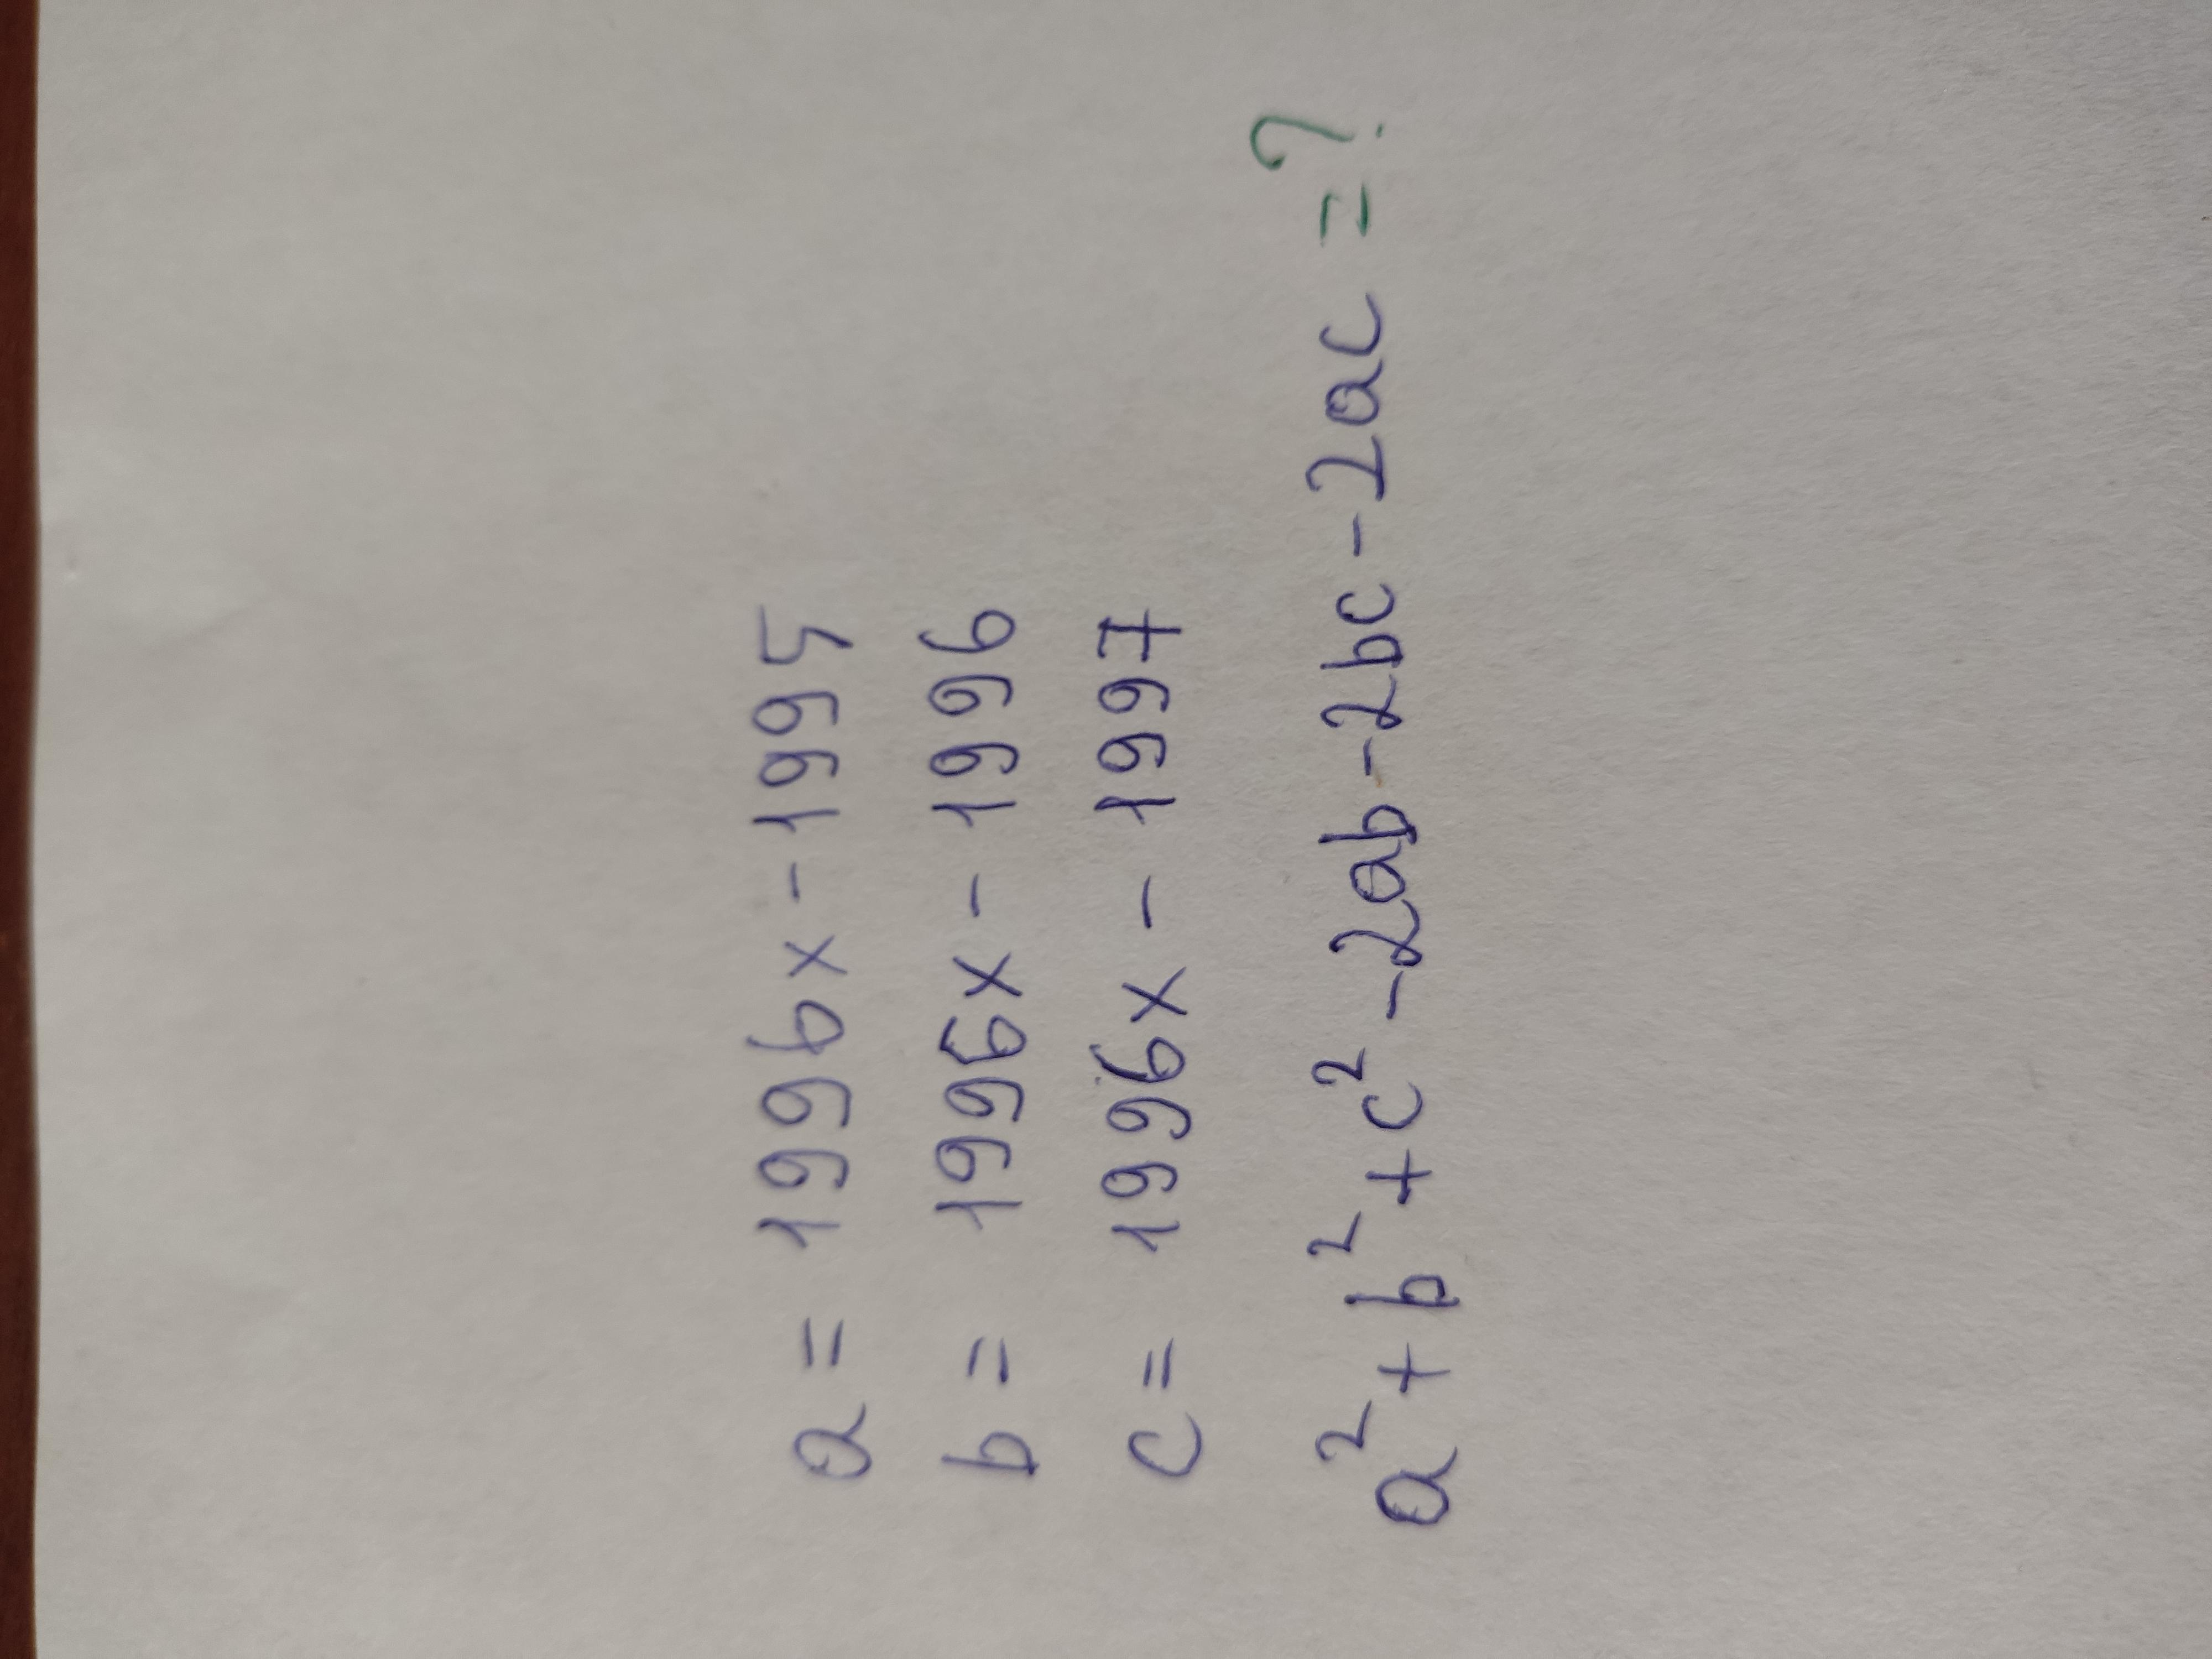 a = 1996x - 1995
b = 1996x - 1996
c = 1996x - 1997
a² + b² + c² - 2ab - 2bc - 2ac = ?